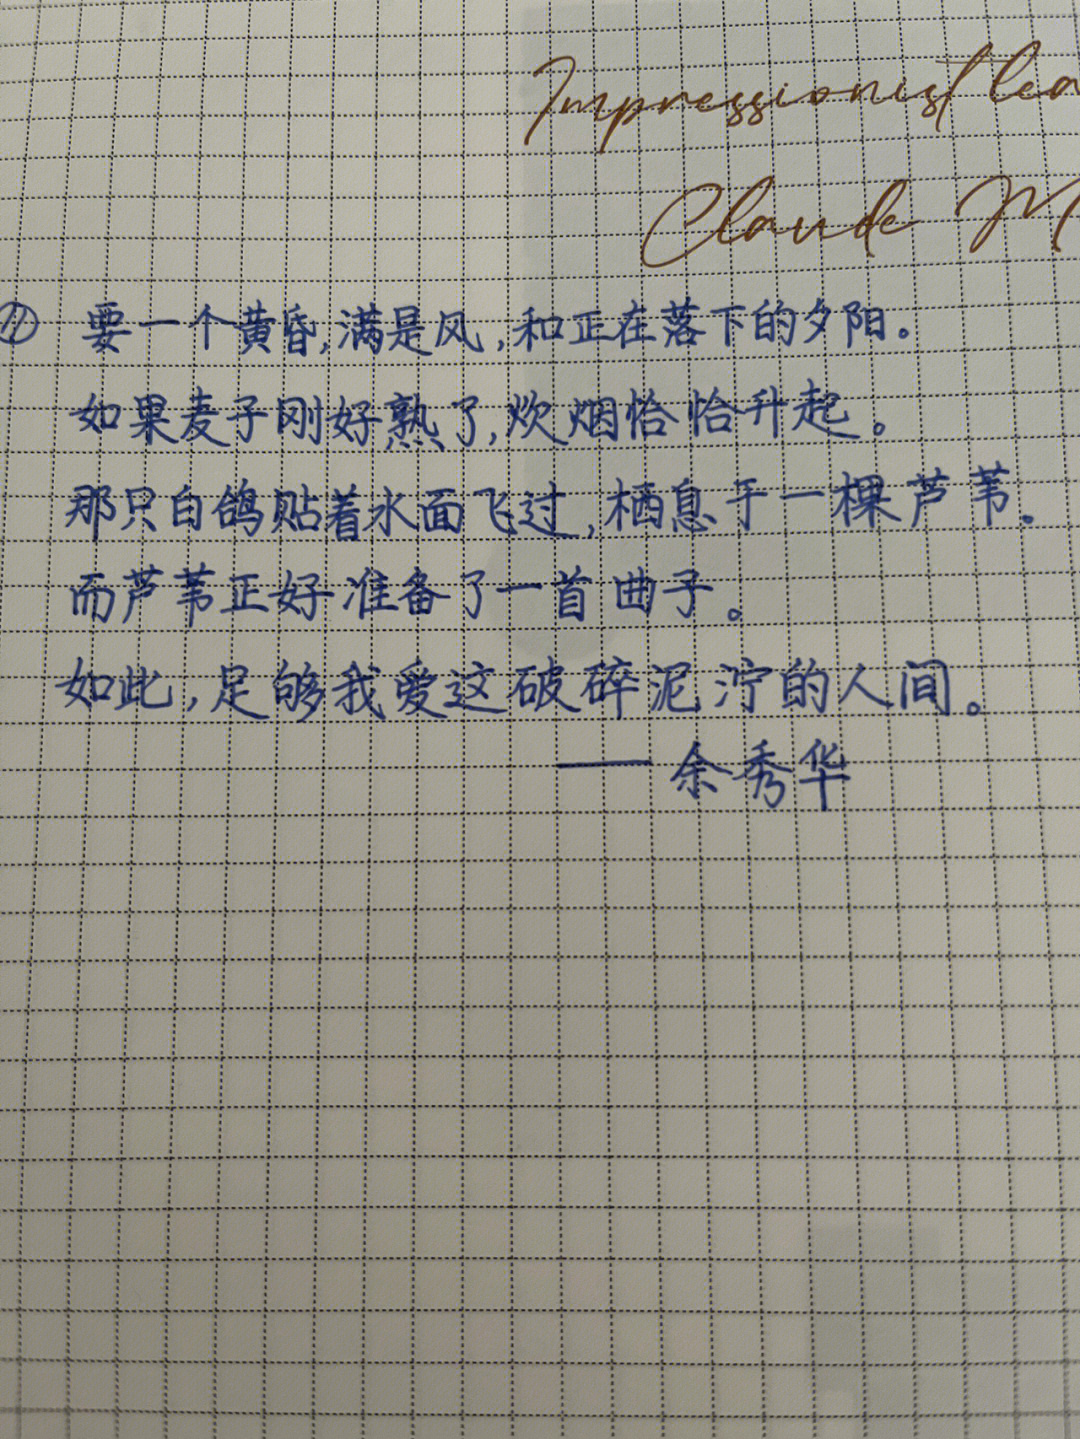 Impressionist lea
Claude M
⑪ 要一个黄昏,满是风,和正在落下的夕阳。
如果麦子刚好熟了,炊烟恰恰升起。
那只白鸽贴着水面飞过,栖息于一棵芦苇。
而芦苇正好准备了一首曲子。
如此,足够我爱这破碎泥泞的人间。
——余秀华